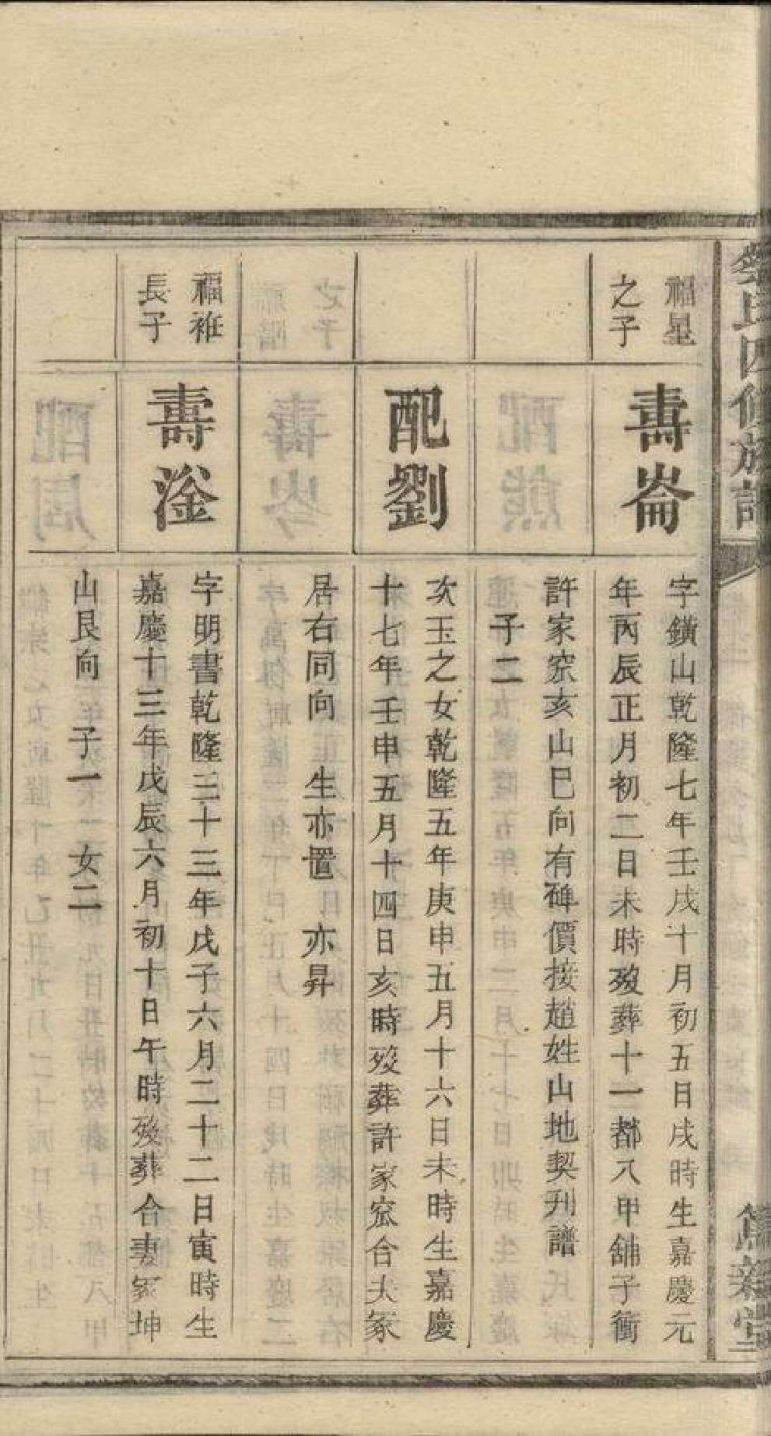 氏四修族譜
福星
之子
壽崙
字鐄山乾隆七年壬戌十月初五日戌時生嘉慶元
年丙辰正月初二日未時歿葬十一都八甲舖子衝
許家窊亥山巳向有碑價接趙姓山地契刋譜
子二
配劉
次玉之女乾隆五年庚申五月十六日未時生嘉慶
十七年壬申五月十四日亥時歿葬許家窊合夫冢
居右同向 生亦置 亦昇
福維
長子
壽淦
字明書乾隆三十三年戊子六月二十二日寅時生
嘉慶十三年戊辰六月初十日午時歿葬合妻冢坤
山艮向 子一 女二